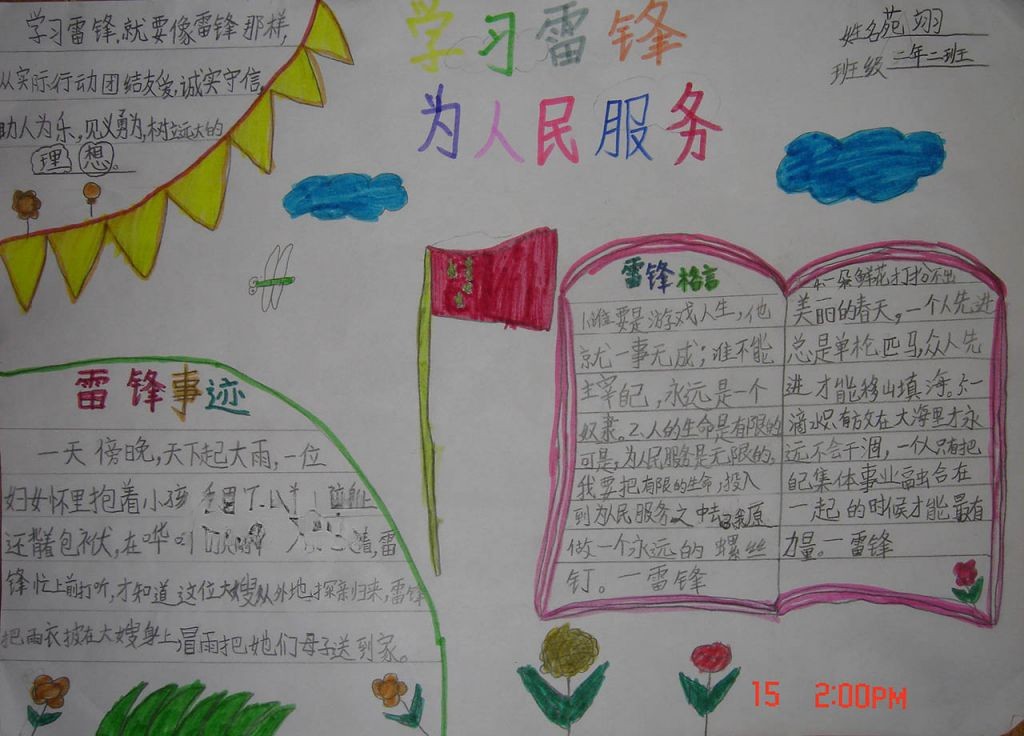 学习雷锋,就要像雷锋那样,
从实际行动团结友爱,诚实守信,
助人为乐,见义勇为,树立远大的
理想。
学习雷锋
为人民服务
姓名苑翊
班级二年二班
雷锋格言
1.谁要是游戏人生,他
就一事无成;谁不能
主宰自己,永远是一个
奴隶。2.人的生命是有限的
可是,为人民服务是无限的,
我要把有限的生命,投入
到为民服务之中去。3.我愿
做一个永远的螺丝
钉。一雷锋
4.一朵鲜花打扮不出
美丽的春天,一个人先进
总是单枪匹马,众人先
进才能移山填海。5.一
滴水只有放在大海里才永
远不会干涸,一个人只有把
自己集体事业融合在
一起的时候才能最有
力量。一雷锋
雷锋事迹
一天傍晚,天下起大雨,一位
妇女怀里抱着小孩
还背着包袱,在哗
着,雷
锋忙上前打听,才知道这位大嫂从外地探亲归来,雷锋
把雨衣披在大嫂身上,冒雨把她们母子送到家。
15 2:00PM